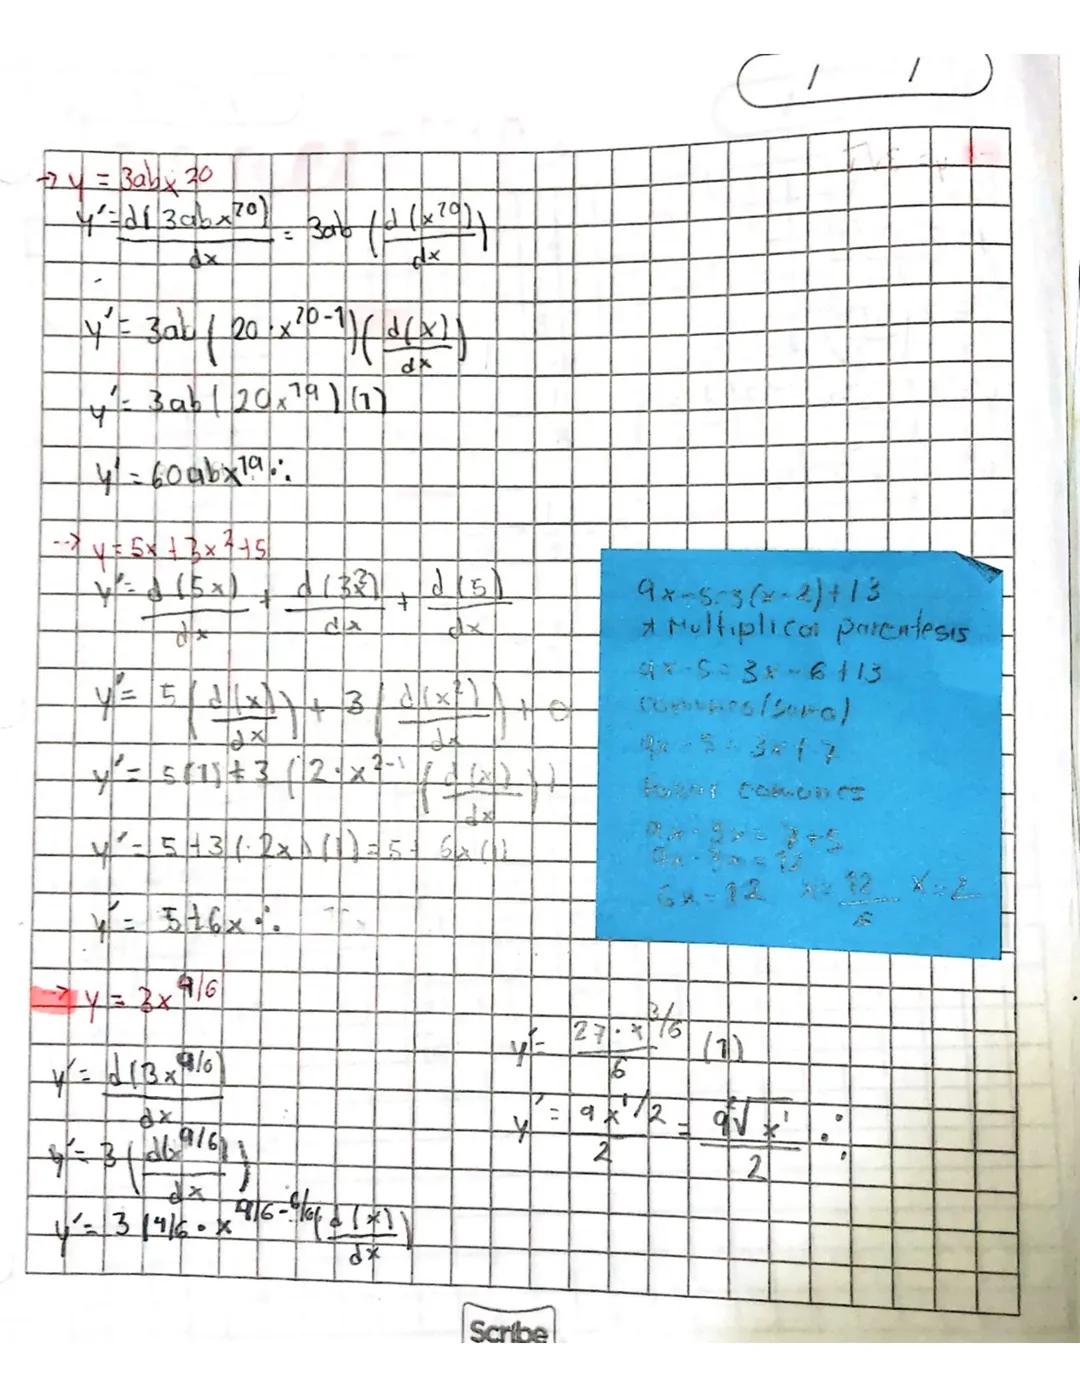 / /
→ y = 3abx^20
y' = d(3abx^20)/dx = 3ab (d(x^20)/dx)
y' = 3ab (20·x^20-1)(d(x)/dx)
y' = 3ab(20x^19)(1)
y' = 60abx^19 ∴
--> y = 5x+3x^2+5
y' = d(5x)/dx + d(3x^2)/dx + d(5)/dx
y' = 5(d(x)/dx) + 3(d(x^2)/dx) + 0
y' = 5(1)+3(2·x^2-1(d(x)/dx))
y' = 5+3(·2x)(1)=5+6x(1)
y' = 5+6x ∴
9x-5=3(x-2)+13
* Multiplicar parentesis
9x-5=3x-6+13
comunes(suma)
9x-5=3x+7
comunes
9x-3x=7+5
9x-3x=12
6x=12 x=12/6 x=2
--> y = 3x^9/6
y' = d(3x^9/6)/dx
y' = 3(d(x^9/6)/dx)
y' = 3(9/6·x^9/6-6/6(d(x)/dx)
y' = 27·x^3/6 /6 (1)
y' = 9x^1/2 /2 = 9√x^1 /2 ∴
Scribe